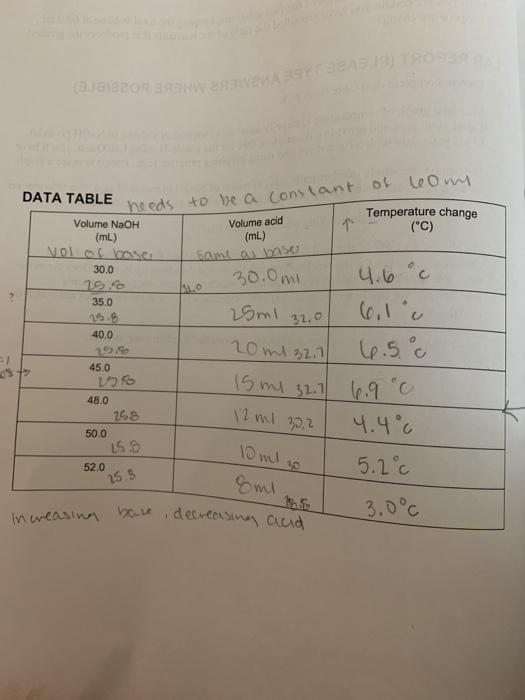 DATA TABLE needs to be a constant of 60ml
Volume NaOH (mL) Volume acid (mL) ↑ Temperature change (°C)
vol of base same as base
30.0 30.0ml 4.6°c
25.8
35.0 25ml 32.0 6.1°c
25.8
40.0 20ml 32.7 6.5°c
25.8
45.0 15ml 32.7 6.9°c
25.8
48.0 12ml 30.2 4.4°c
25.8
50.0 10ml 30 5.2°c
25.8
52.0 8ml 3.0°c
25.8
Increasing base, decreasing acid